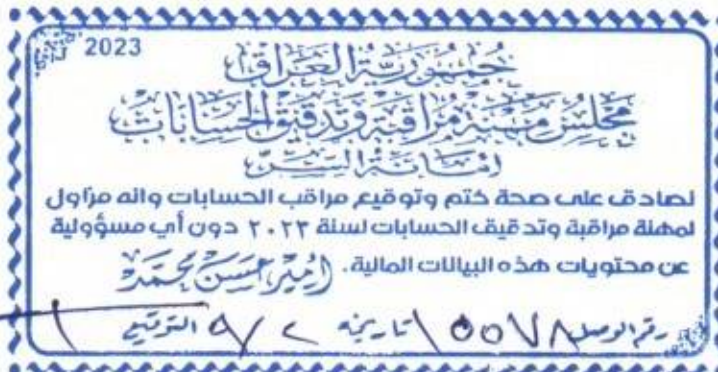 2023
جمهورية العراق
مجلس مهنة مراقبة وتدقيق الحسابات
امانة السر
نصادق على صحة ختم وتوقيع مراقب الحسابات وانه مزاول
لمهنة مراقبة وتدقيق الحسابات لسنة ٢٠٢٣ دون أي مسؤولية
عن محتويات هذه البيانات المالية. امير حسن محمد
رقم الوصل ١٥٥٧٨ تاريخه ٩/٢ التوقيع